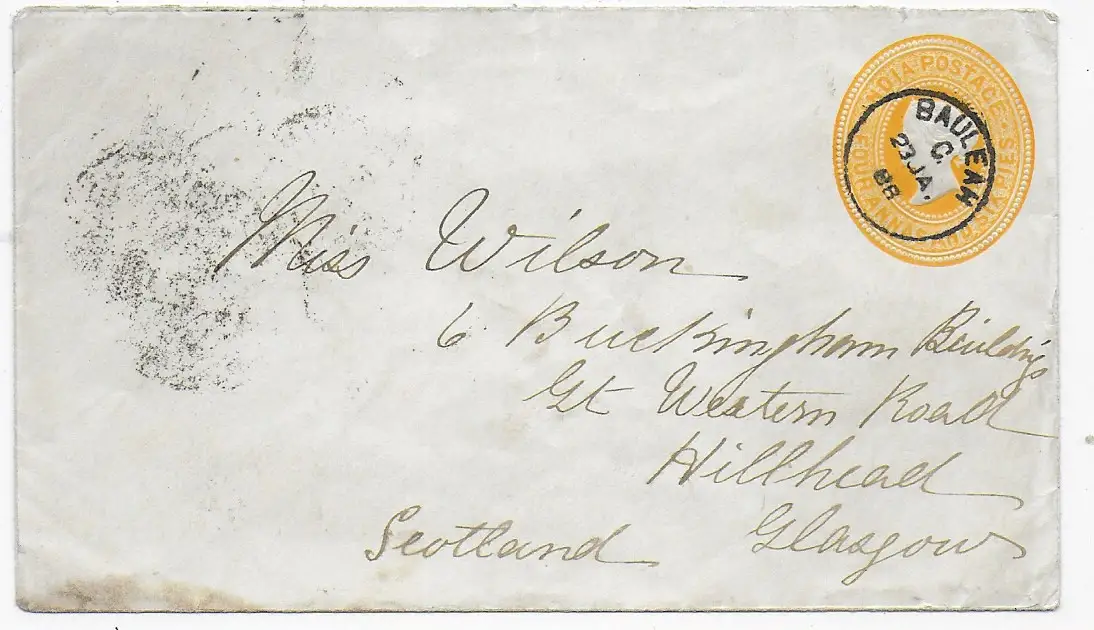 INDIA POSTAGE
FOUR ANNAS AND SIX PIES
BAULEAH
C
23 JA.
88
Miss Wilson
6 Buckingham Buildings
Gt Western Road
Hillhead
Scotland Glasgow